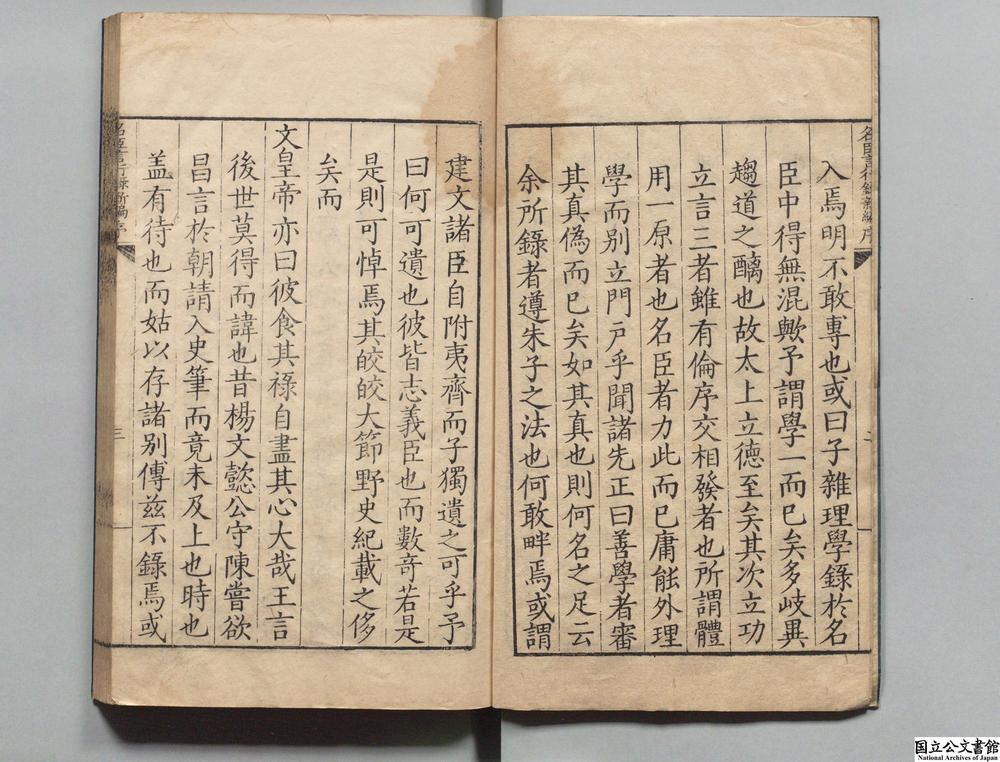 名臣言行錄新編序
二
入焉明不敢專也或曰子雜理學錄於名
臣中得無混歟予謂學一而已矣多岐異
趨道之醨也故太上立德至矣其次立功
立言三者雖有倫序交相發者也所謂體
用一原者也名臣者力此而已庸能外理
學而别立門戶乎聞諸先正曰善學者審
其真偽而已矣如其真也則何名之足云
余所錄者遵朱子之法也何敢畔焉或謂
建文諸臣自附夷齊而子獨遺之可乎予
曰何可遺也彼皆志義臣也而數奇若是
是則可悼焉其皎皎大節野史紀載之侈
矣而
文皇帝亦曰彼食其祿自盡其心大哉王言
後世莫得而諱也昔楊文懿公守陳嘗欲
昌言於朝請入史筆而竟未及上也時也
盖有待也而姑以存諸别傳兹不錄焉或
名臣言行錄新編序
三
国立公文書館
National Archives of Japan